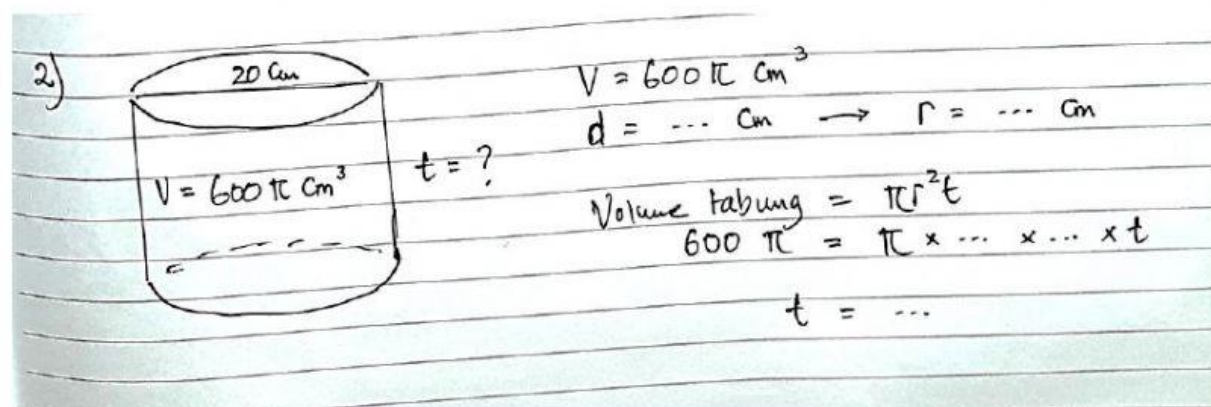 2)
20 Cm
V = 600 π Cm³
t = ?
V = 600 π Cm³
d = ... Cm → r = ... Cm
Volume tabung = πr²t
600 π = π × ... × ... × t
t = ...